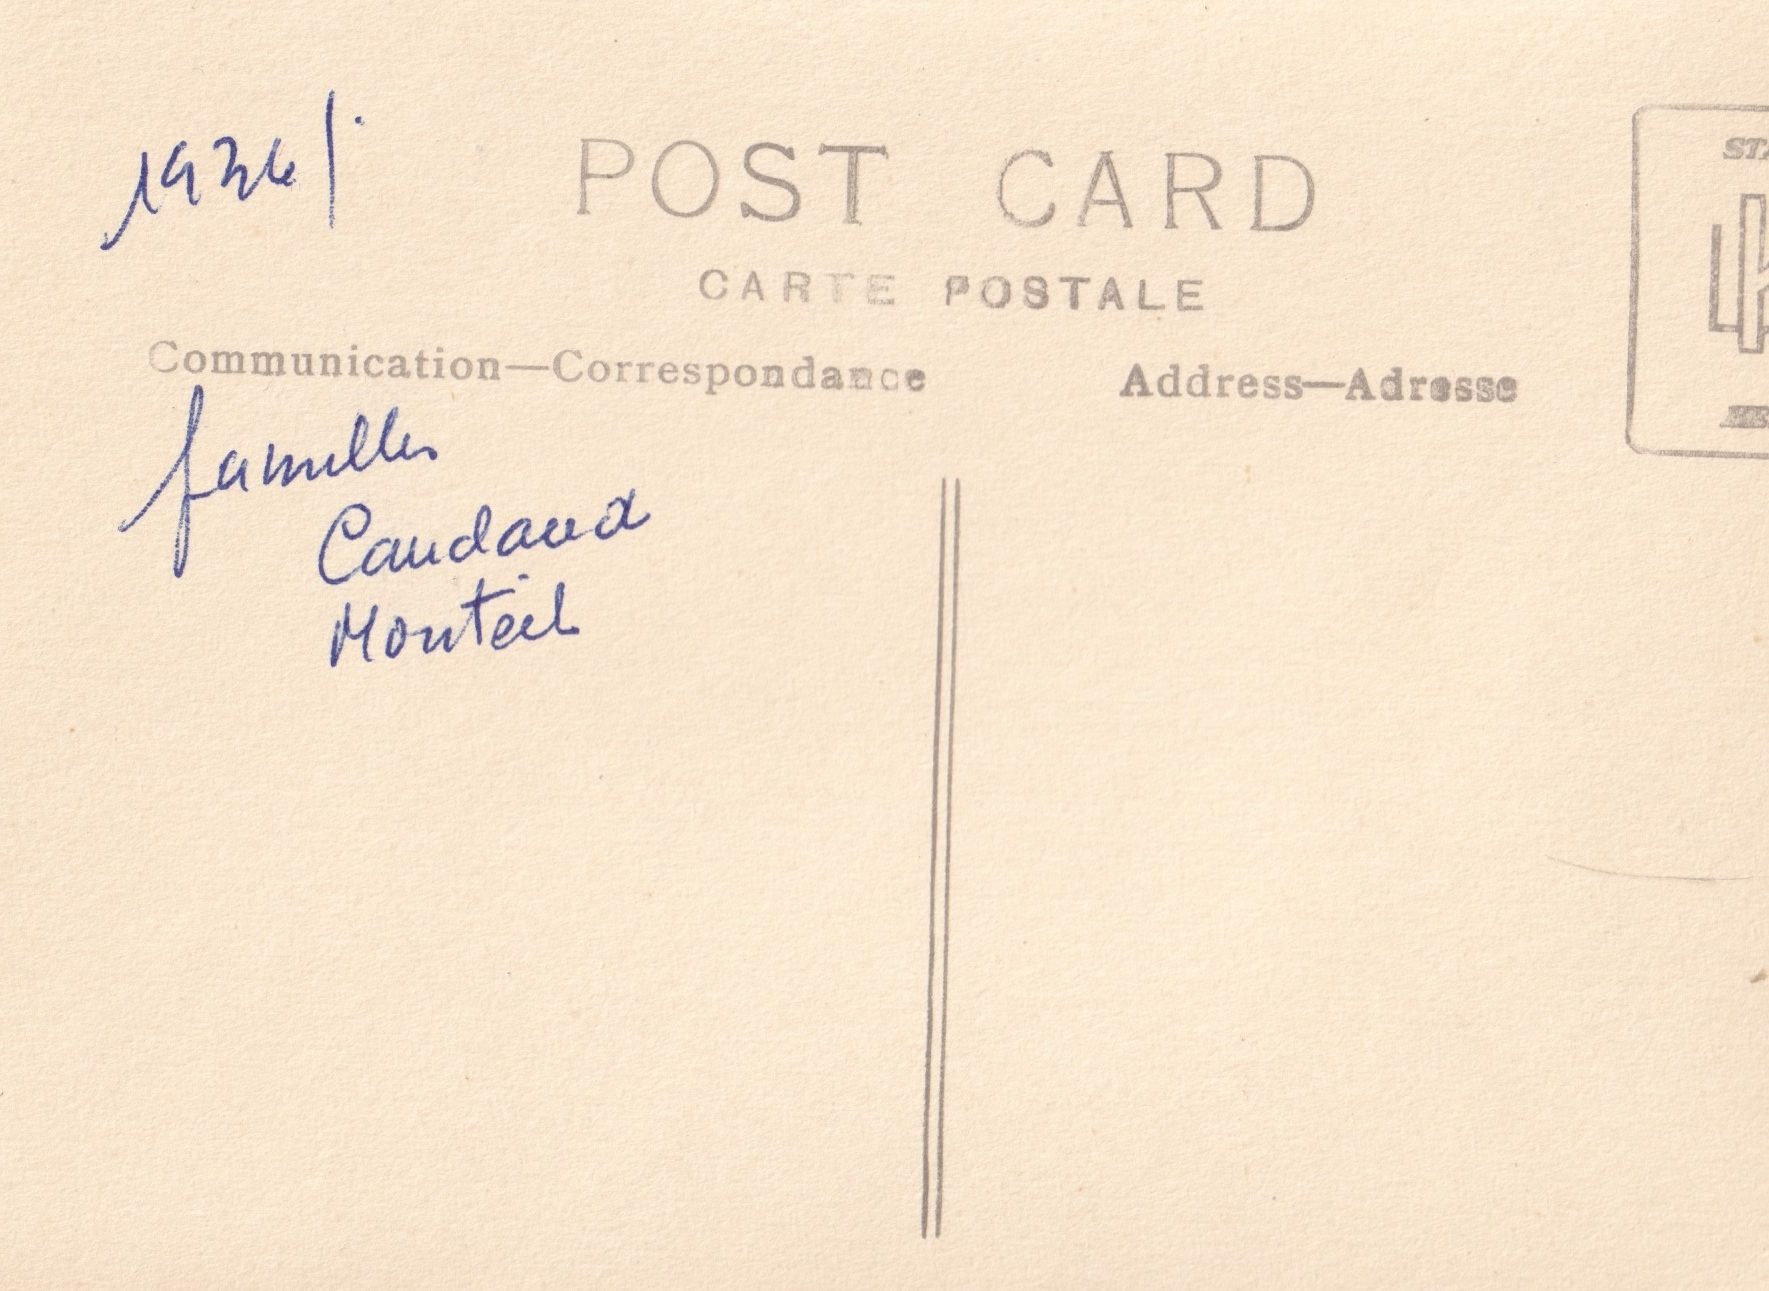 POST CARD
CARTE POSTALE
Communication—Correspondance
Address—Adresse
familles
Monteil